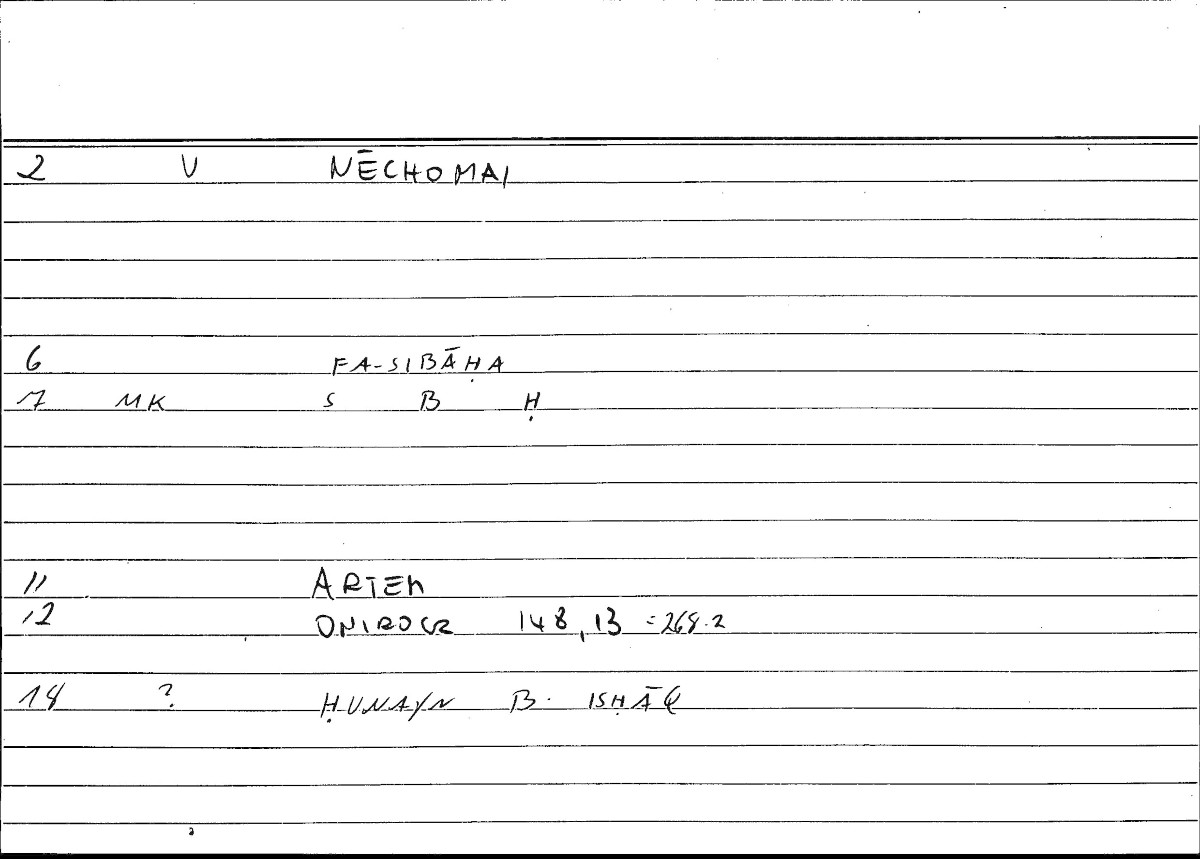 2 V NĒCHOMAI
6 FA-SIBĀḤA
7 MK S B Ḥ
11 ARTEM
12 ONIROCR 148,13 =268.2
18 ? ḤUNAYN B. ISḤĀQ